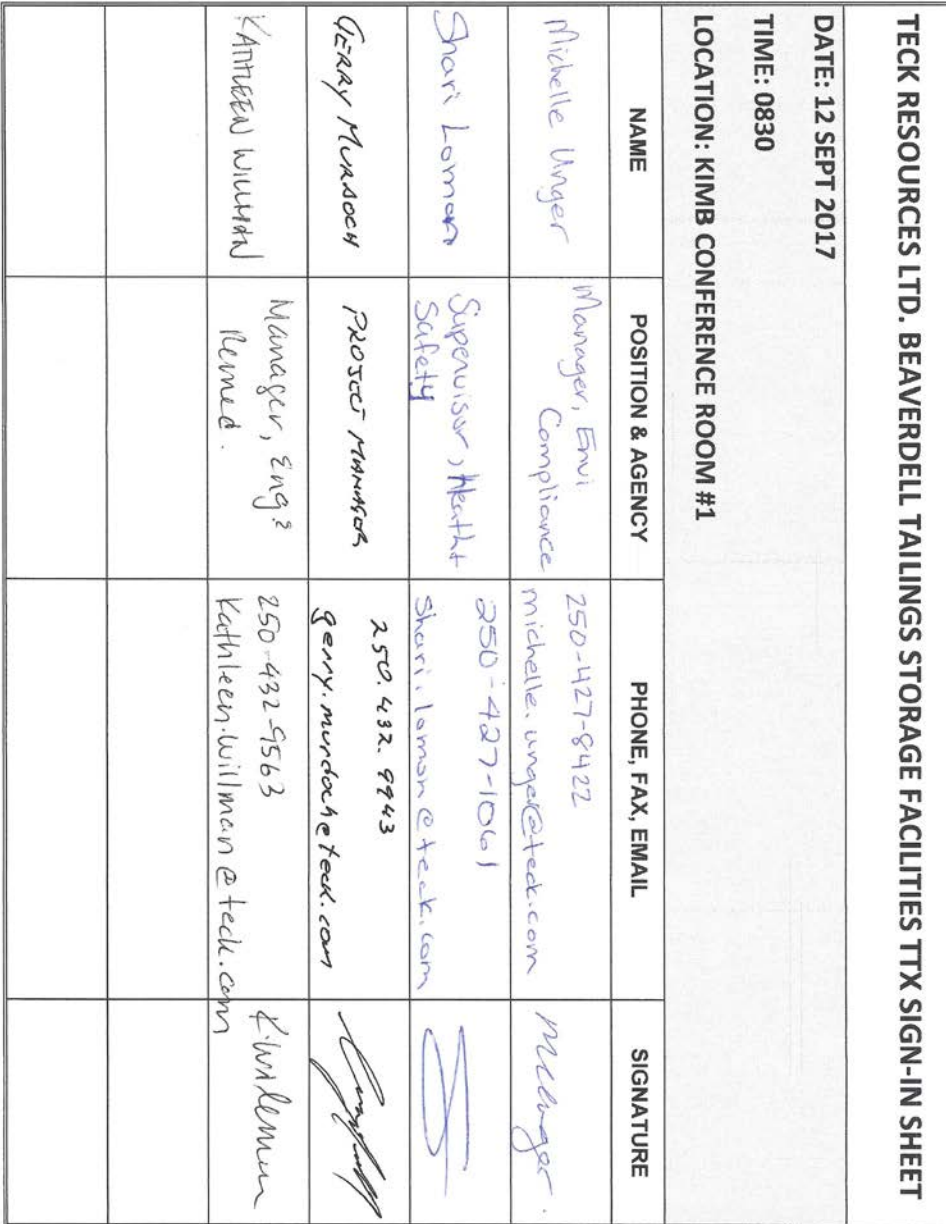 TECK RESOURCES LTD. BEAVERDELL TAILINGS STORAGE FACILITIES TTX SIGN-IN SHEET
DATE: 12 SEPT 2017
TIME: 0830
LOCATION: KIMB CONFERENCE ROOM #1
NAME
POSITION & AGENCY
PHONE, FAX, EMAIL
SIGNATURE
Michelle Unger
Manager, Envi
Compliance
250-427-8422
michelle.unger@teck.com
MUnger.
Shari Loman
Supervisor, Health +
Safety
250-427-1061
Shari.loman@teck.com
GERRY MURDOCH
PROJECT MANAGER
250.432.9943
gerry.murdoch@teck.com
KATHLEEN WILLMAN
Manager, Eng &
Remed.
250-432-9563
Kathleen.Willman@teck.com